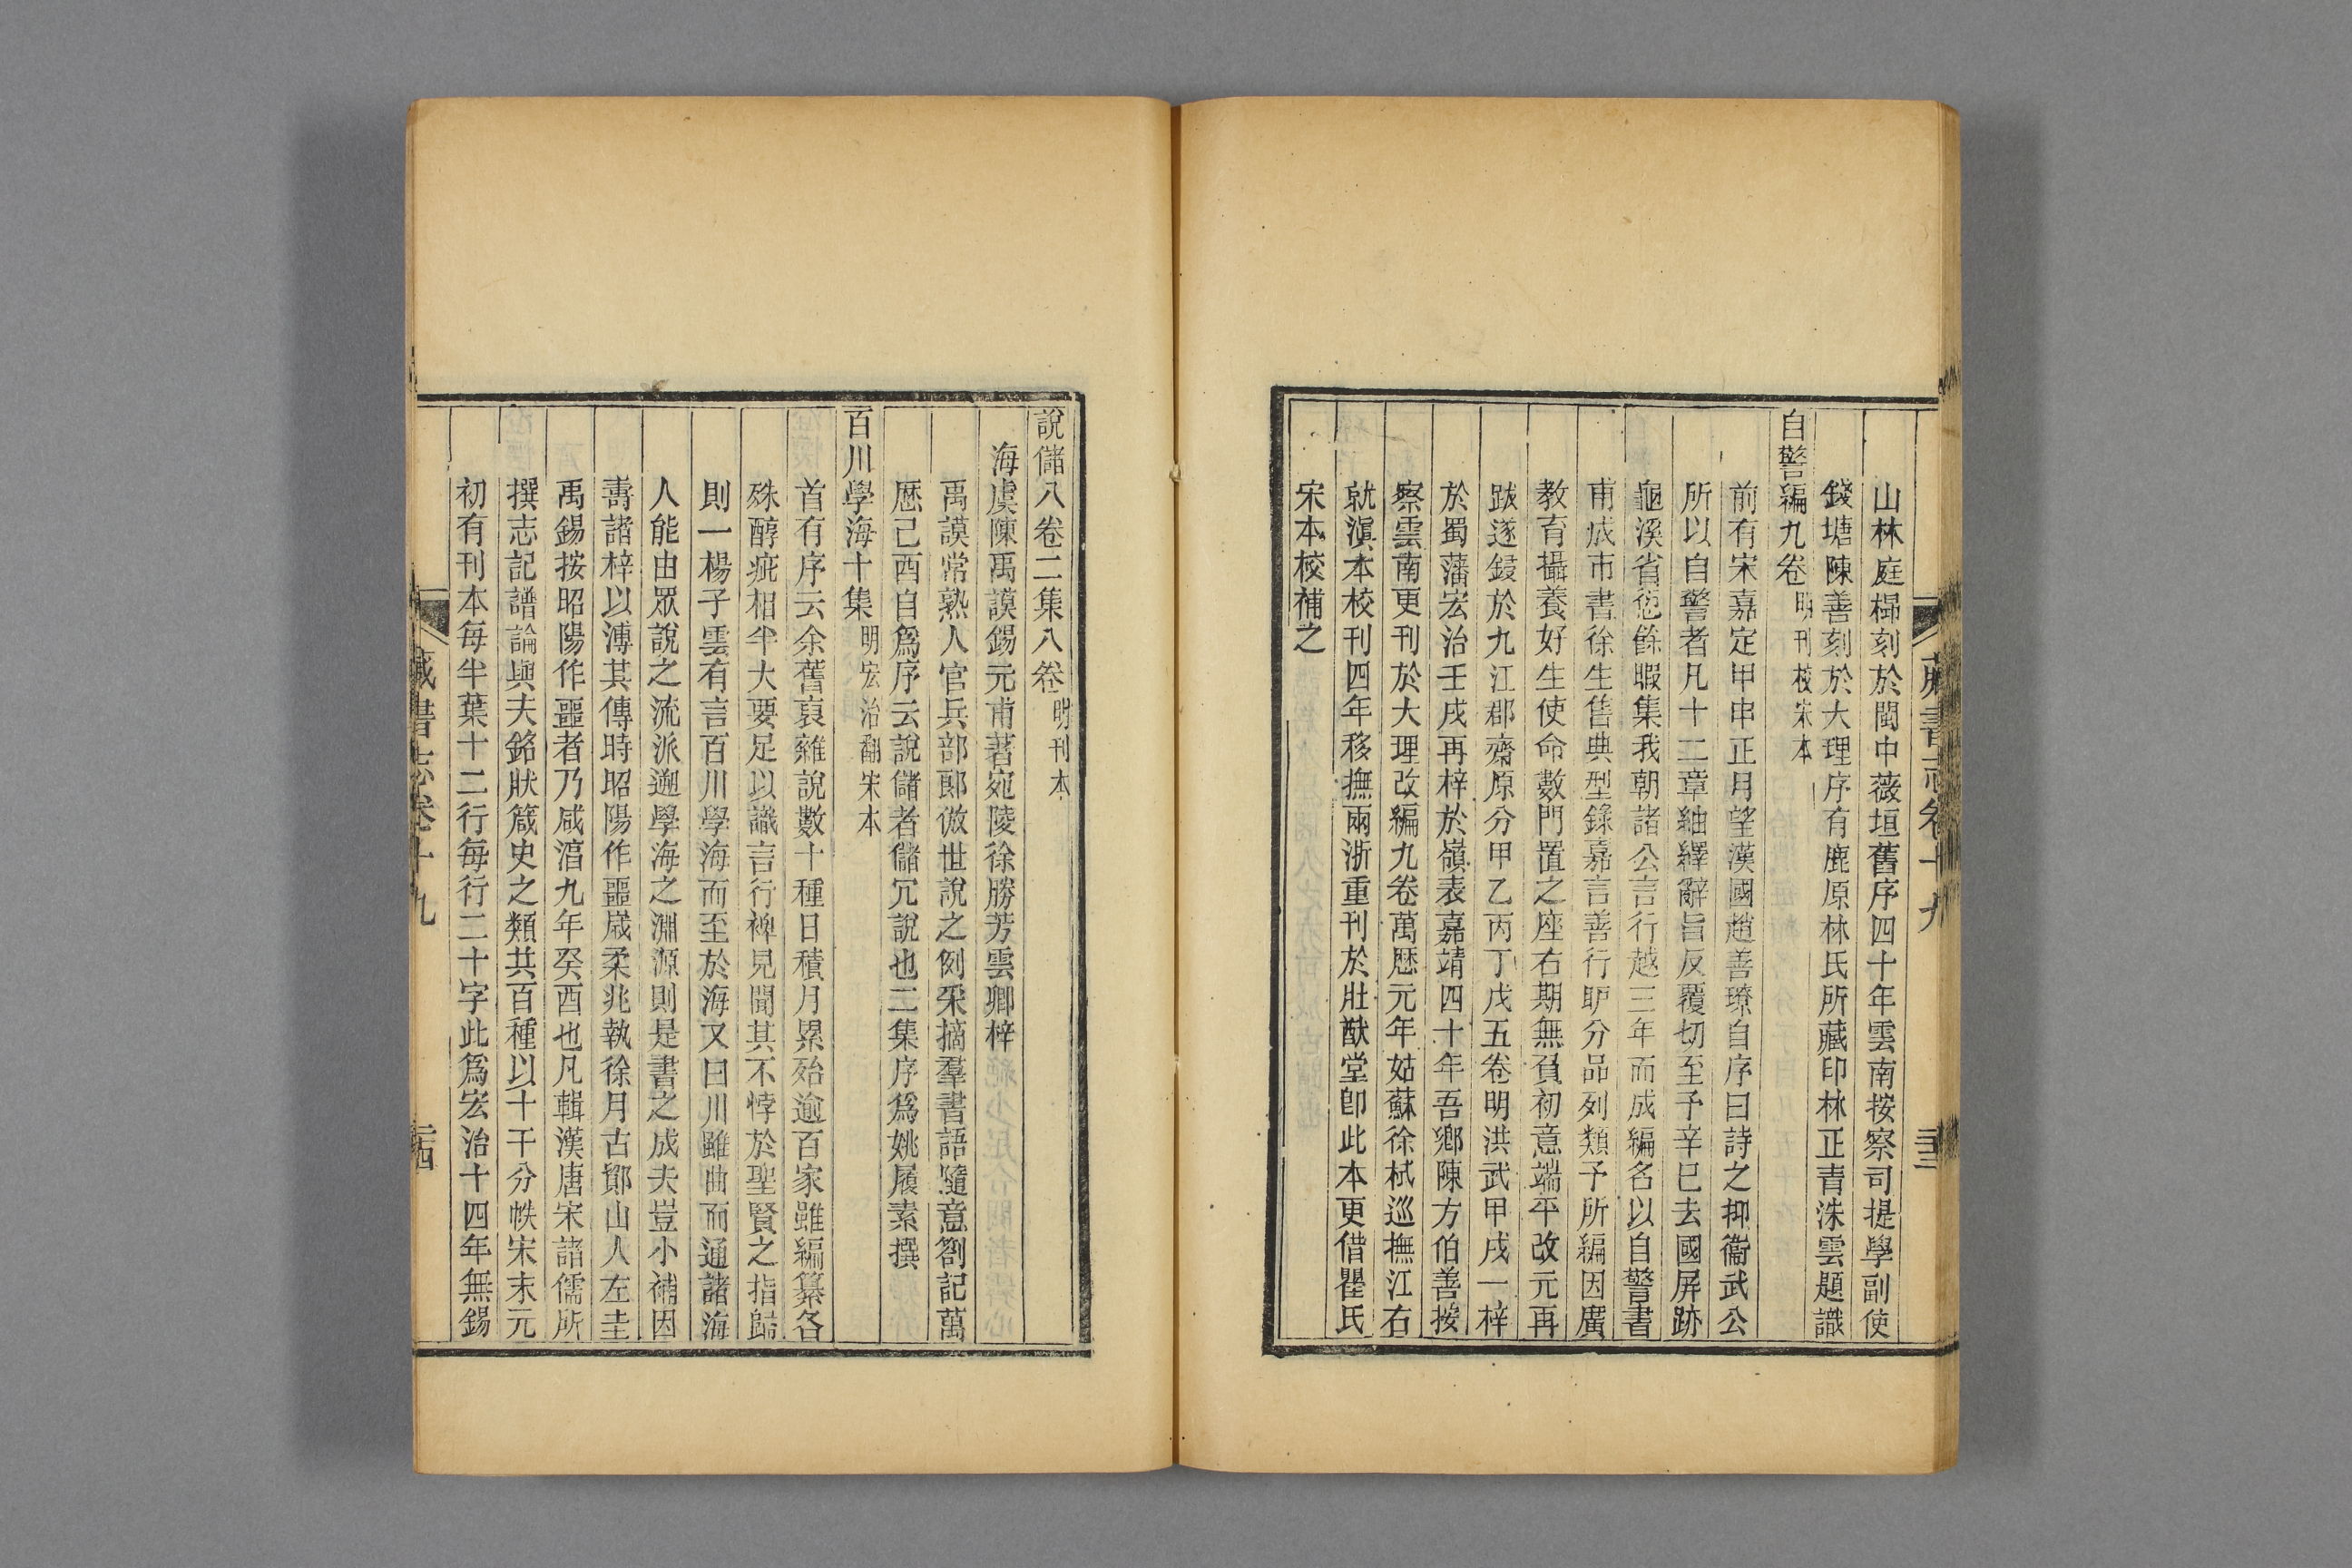 藏書志卷十九
三十三
山林庭㭿刻於閩中薇垣舊序四十年雲南按察司提學副使
錢塘陳善刻於大理序有鹿原林氏所藏印林正青洙雲題識
自警編九卷 明刊校宋本
前有宋嘉定甲申正月望漢國趙善璙自序曰詩之抑衞武公
所以自警者凡十二章紬繹辭旨反覆切至予辛巳去國屏跡
龜溪省愆餘暇集我朝諸公言行越三年而成編名以自警書
甫成市書徐生售典型錄嘉言善行昈分品列類予所編因廣
教育攝養好生使命數門置之座右期無負初意端平改元再
跋遂鋟於九江郡齋原分甲乙丙丁戊五卷明洪武甲戌一梓
於蜀藩宏治壬戌再梓於嶺表嘉靖四十年吾鄉陳方伯善按
察雲南更刊於大理改編九卷萬厯元年姑蘇徐栻巡撫江右
就滇本校刊四年移撫兩浙重刊於壯猷堂卽此本更借瞿氏
宋本校補之
說儲八卷二集八卷 明刊本
海虞陳禹謨錫元甫著宛陵徐勝芳雲卿梓
禹謨常熟人官兵部郎倣世說之例采摘羣書語隨意劄記萬
厯己酉自爲序云說儲者儲宂說也二集序爲姚履素撰
百川學海十集 明宏治翻宋本
首有序云余舊裒雜說數十種日積月累殆逾百家雖編纂各
殊醇疵相半大要足以識言行裨見聞其不悖於聖賢之指歸
則一楊子雲有言百川學海而至於海又曰川雖曲而通諸海
人能由眾說之流派遡學海之淵源則是書之成夫豈小補因
壽諸梓以溥其傳時昭陽作噩嵗柔兆執徐月古鄮山人左圭
禹錫按昭陽作噩者乃咸湻九年癸酉也凡輯漢唐宋諸儒所
撰志記譜論與夫銘狀箴史之類共百種以十干分帙宋末元
初有刊本每半葉十二行每行二十字此爲宏治十四年無錫
藏書志卷十九
三十四